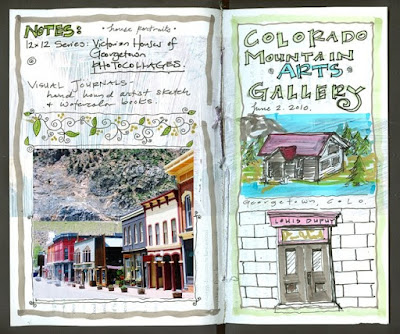 NOTES: • house portraits •
12x12 Series: Victorian Houses of
@ Georgetown
PHOTOCOLLAGES.
VISUAL JOURNALS-
hand bound artist sketch
& watercolor books.
COLORADO
MOUNTAIN
• ARTS •
GALLERY
June 2. 2010.
Georgetown, Colo.
LOUIS DUPUY